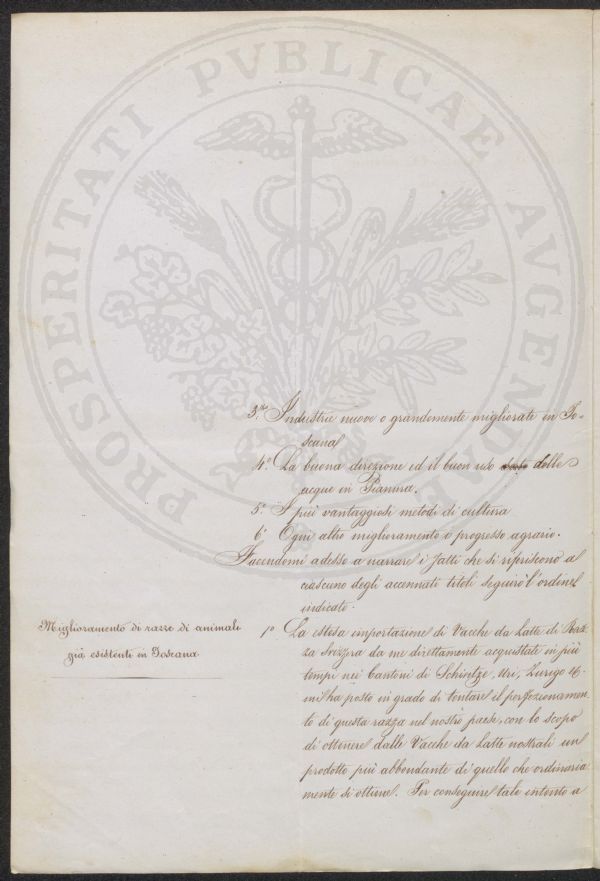 PROSPERITATI PVBLICAE AVGENDAE
3º. Industrie nuove o grandemente migliorate in To-
scana
4º. La buona direzione ed il buon uso delle
acque in Pianura.
5º. I più vantaggiosi metodi di cultura
6º. Ogni altro miglioramento o progresso agrario.
Facendomi adesso a narrare i fatti che si riferiscono a
ciascuno degli accennati titoli seguirò l'ordine
indicato.
Miglioramento di razze di animali
già esistenti in Toscana
1º. La estesa importazione di Vacche da Latte di Raz-
za Svizzera da me direttamente acquistate in più
tempi nei Cantoni di Schintze, Uri, Zurigo &.
mi ha posto in grado di tentare il perfezionamen-
to di questa razza nel nostro paese, con lo scopo
di ottenere dalle Vacche da Latte nostrali un
prodotto più abbondante di quello che ordinaria
mente si ottiene. Per conseguire tale intento a